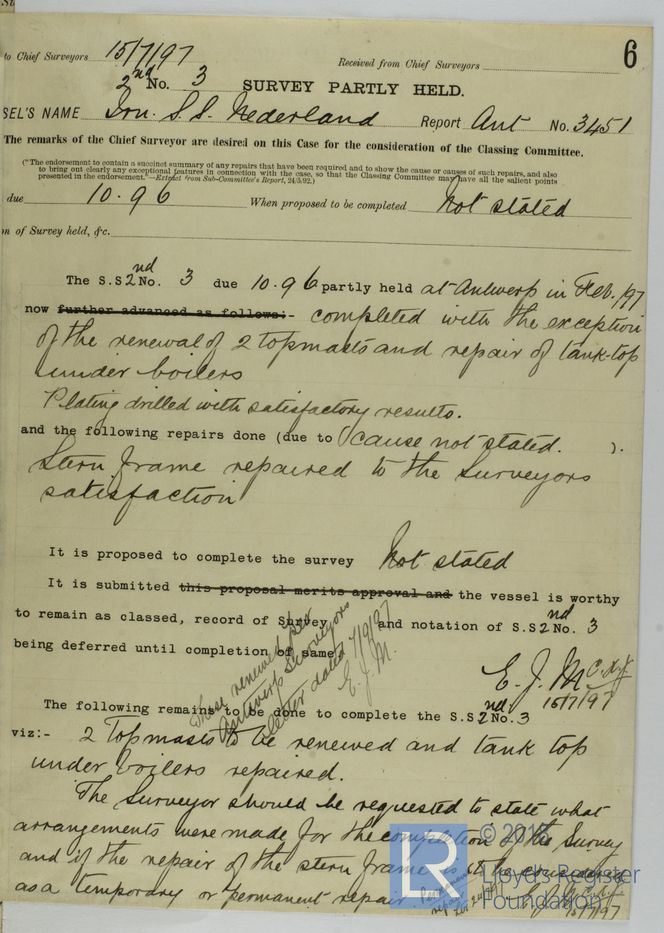 6
to Chief Surveyors 15/7/97 Received from Chief Surveyors
2nd No. 3 SURVEY PARTLY HELD.
SEL'S NAME Irn. S.S. Nederland Report Ant No. 3451
The remarks of the Chief Surveyor are desired on this Case for the consideration of the Classing Committee.
("The endorsement to contain a succinct summary of any repairs that have been required and to show the cause or causes of such repairs, and also
to bring out clearly any exceptional features in connection with the case, so that the Classing Committee may have all the salient points
presented in the endorsement."—Extract from Sub-Committee's Report, 24/5/92.)
due 10.96 When proposed to be completed Not stated
n of Survey held, &c.
The S.S 2nd No. 3 due 10.96 partly held at Antwerp in Feb. /97
now further advanced as follows:- completed with the exception
of the renewal of 2 topmasts and repair of tank-top
under boilers
Plating drilled with satisfactory results.
and the following repairs done (due to cause not stated. ).
Stern frame repaired to the Surveyors
satisfaction
It is proposed to complete the survey Not stated
It is submitted this proposal merits approval and the vessel is worthy
to remain as classed, record of Survey and notation of S.S 2nd No. 3
being deferred until completion of same
These renewed per
Antwerp Surveyors
letter dated 7/9/97
E. J. M.
E. J. M
15/7/97
The following remains to be done to complete the S.S 2nd No. 3
viz:- 2 Topmasts to be renewed and tank top
under boilers repaired.
The Surveyor should be requested to state what
arrangements were made for the completion of the Survey
and if the repair of the stern frame is to be considered
as a temporary or permanent repair
15/7/97
© 2018
Lloyd's Register
Foundation
LR